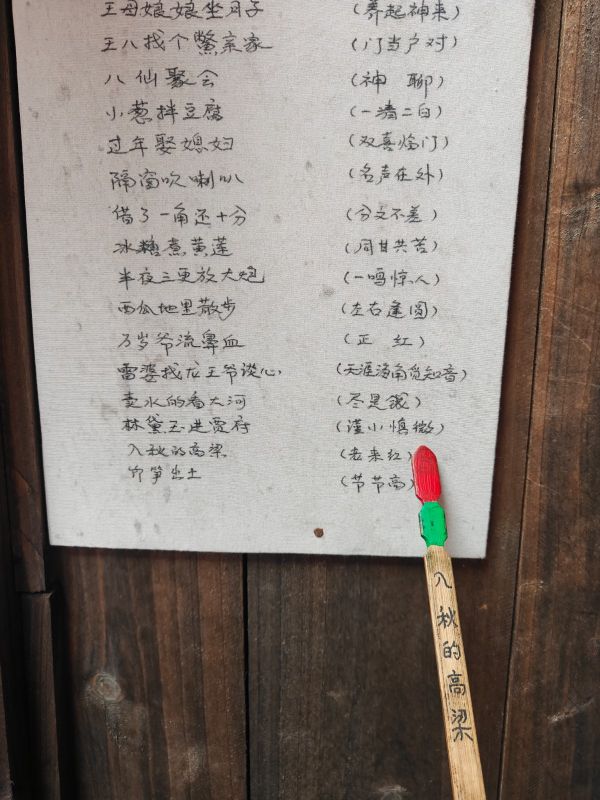 王母娘娘坐月子 (养起神来)
王八找个鳖亲家 (门当户对)
八仙聚会 (神聊)
小葱拌豆腐 (一清二白)
过年娶媳妇 (双喜临门)
隔窗吹喇叭 (名声在外)
借了一角还十分 (分文不差)
冰糖煮黄莲 (同甘共苦)
半夜三更放大炮 (一鸣惊人)
西瓜地里散步 (左右逢圆)
万岁爷流鼻血 (正红)
雷婆找龙王爷谈心 (天涯海角觅知音)
卖水的看大河 (尽是钱)
林黛玉进贾府 (谨小慎微)
入秋的高梁 (老来红)
竹笋出土 (节节高)
入秋的高梁